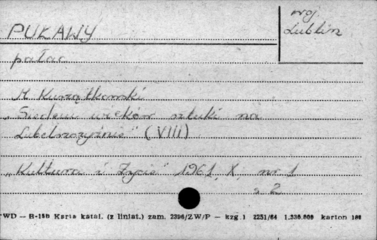 PUŁAWY
woj
Lublin
pałac
A Kurzątkowski
"Siedem wieków sztuki na
Lubelszczyźnie" (VIII)
"Kultura i Życie" 1961, X nr 1
s 2
WD – B-18b Karta katal. (z liniat.) zam. 2396/ZW/P – kzg. 1 2251/64 1.336.000 karton